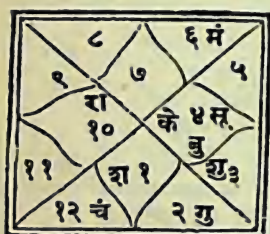 ८ ६ मं
९ ७ ५
रा
१० के ४ सू
बु
११ श १ शु ३
१२ चं २ गु